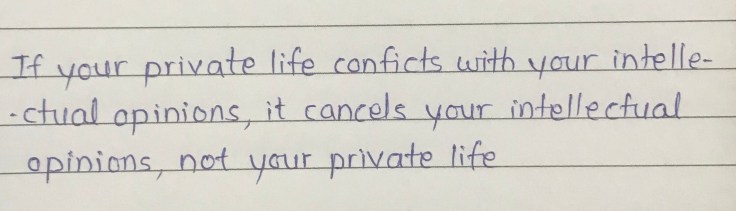 If your private life conficts with your intelle-
-ctual opinions, it cancels your intellectual
opinions, not your private life